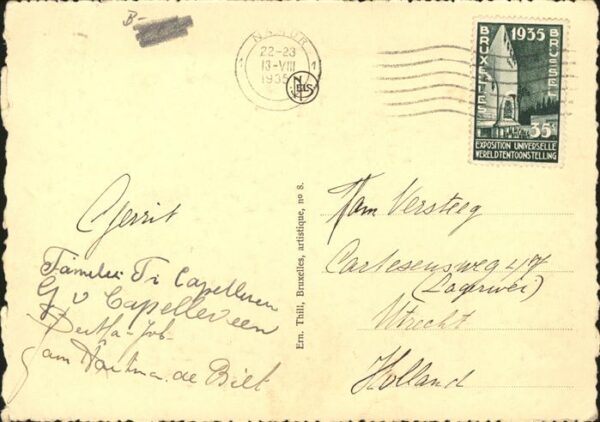 B-
NAMUR
22-23
13-VIII
1935
1
NELS
1935
BRUXELLES
BRUSSEL
35c
EXPOSITION UNIVERSELLE
WERELDTENTOONSTELLING
Gerrit
Familie Ti Capelleveen
G v Capelleveen
Bertha-Job
de Bilt
Ern. Thill, Bruxelles, artistique, no 8.
Fam Versteeg
Cartesensweg 47
(Lagerwei)
Utrecht
Holland